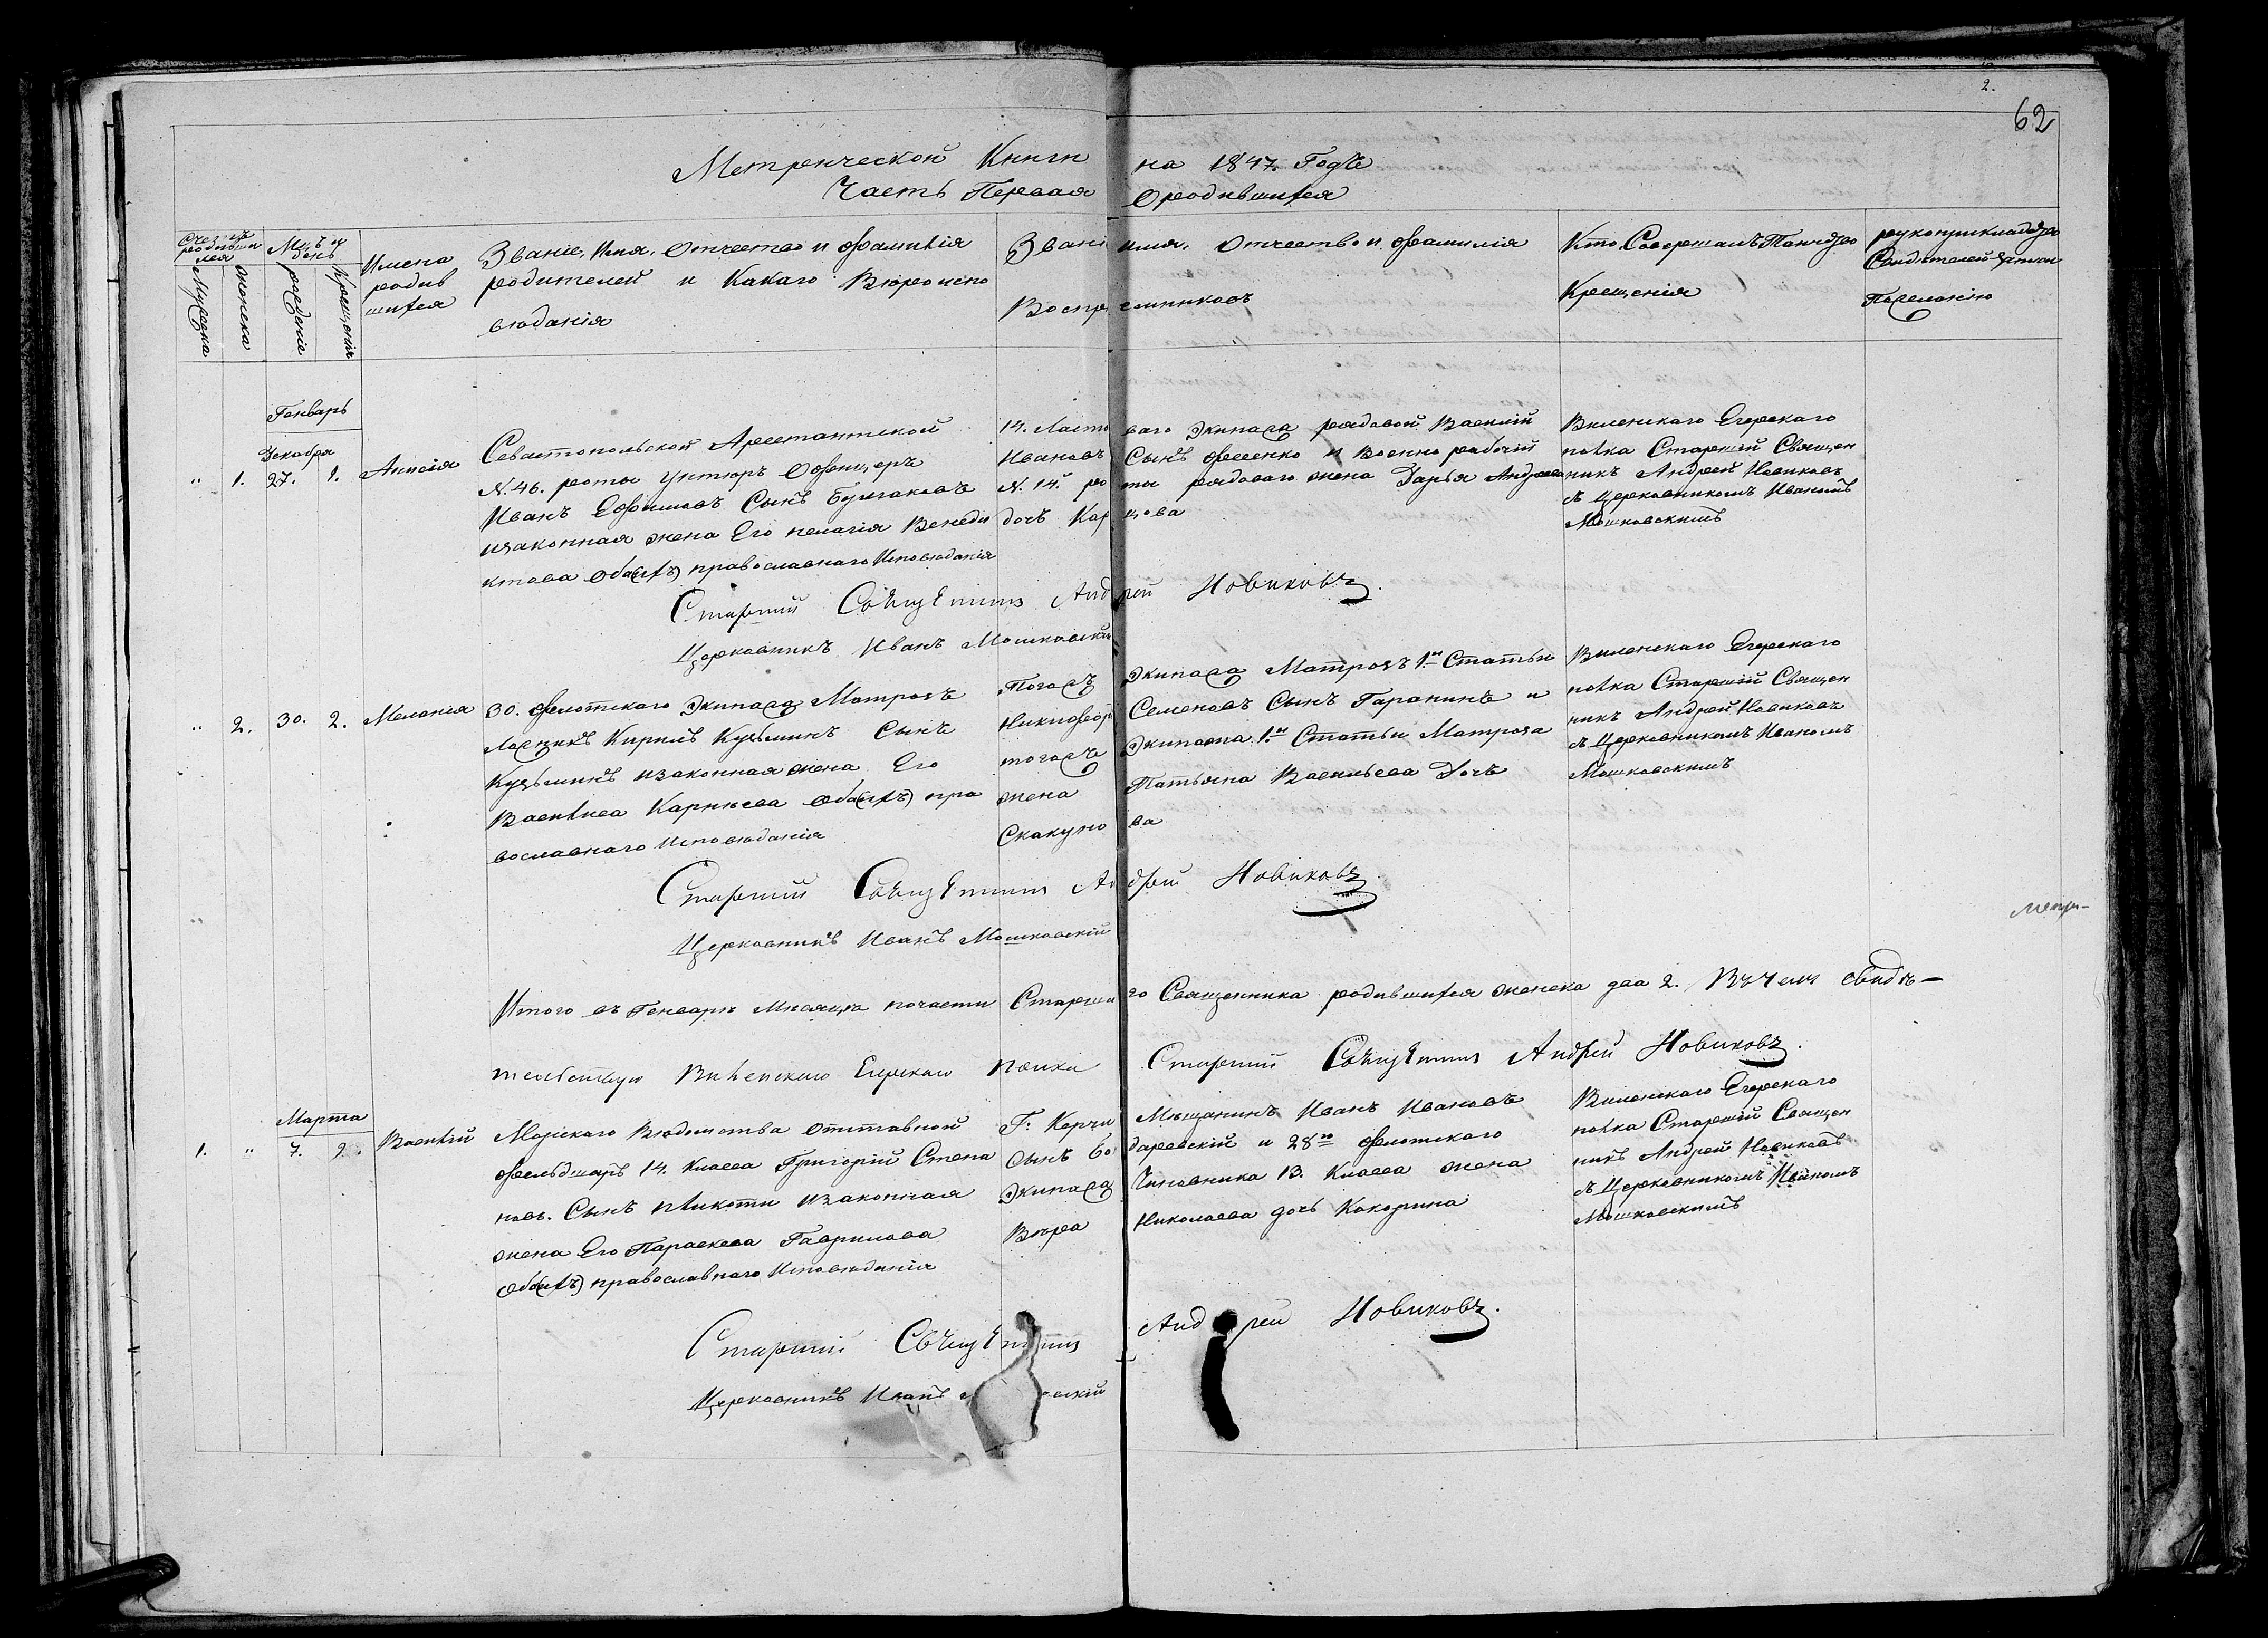 2.
62
Метрической Книги на 1847. Годъ
Часть Первая О родившихся
Счетъ родивши хся
Мужеска
Женска
Мцъ и день
рождения
Крещенія
Имена родив шихся
Званіе, Имя, Отчество и Фамилія
родителей и Какаго Вѣроиспо
вѣданія
Званіе имя, Отчество и Фамилія
Воспреемниковъ
Кто Совершалъ Таинство
Крещенія
рукоприкладство
Свидѣтелей записи
По желанію
Генварь
Декабря
" 1. 27. 1. Анисія
Севастопольской Арестантской
N. 46. роты Унтеръ Офицеръ
Иванъ Ефимовъ Сынъ Булгаковъ
и законная жена Его Пелагія Венеди
ктова Оба(ихъ) православнаго Исповѣданія
14. Ластоваго Экипажа рядовой Василій
Ивановъ Сынъ Фесенко и Военно рабочій
N. 14. роты рядоваго жена Дарья Андреева
дочь Карцова
Виленскаго Егерскаго
полка Старшій Священ
никъ Андрей Новиковъ
съ Церковникомъ Иваномъ
Мошковскимъ
Старшій Священникъ Андрей Новиковъ.
Церковникъ Иванъ Мошковскій
" 2. 30. 2. Меланія
30. Флотскаго Экипажа Матрозъ
Кирилъ Кузьминъ Сынъ
Кузьминъ и законная жена Его
Василиса Карнѣева Оба(ихъ) пра
вославнаго Исповѣданія
Тогожъ Экипажа Матрозъ 1й Статьи
Никифоръ Семеновъ Сынъ Гаранинъ и
тогожъ Экипажа 1й Статьи Матроза
жена Татьяна Васильева Дочь
Скакунова
Виленскаго Егерскаго
полка Старшій Священ
никъ Андрей Новиковъ
съ Церковникомъ Иваномъ
Мошковскимъ
Старшій Священникъ Андрей Новиковъ.
Церковникъ Иванъ Мошковскій
Итого въ Генварѣ Мѣсяцѣ по части Старшаго Священника родившихся женска два 2. Въ чемъ свидѣ-
тельствую Виленскаго Егерскаго полка Старшій Священникъ Андрей Новиковъ.
Марта
1. " 7. 9. Василій
Морскаго Вѣдомства Отставной
Фельдшаръ 14. Класса Григорій Степа
новъ Сынъ и законная
жена Его Параскева Гаврилова
Оба(ихъ) православнаго Исповѣданія
Г. Керчи Мѣщанинъ Иванъ Ивановъ
Сынъ и 28го Флотскаго
Экипажа Чиновника 13. Класса жена
Вѣра Николаева дочь Какорина
Виленскаго Егерскаго
полка Старшій Священ
никъ Андрей Новиковъ
съ Церковникомъ Иваномъ
Мошковскимъ
Старшій Священникъ Андрей Новиковъ.
Церковникъ Иванъ